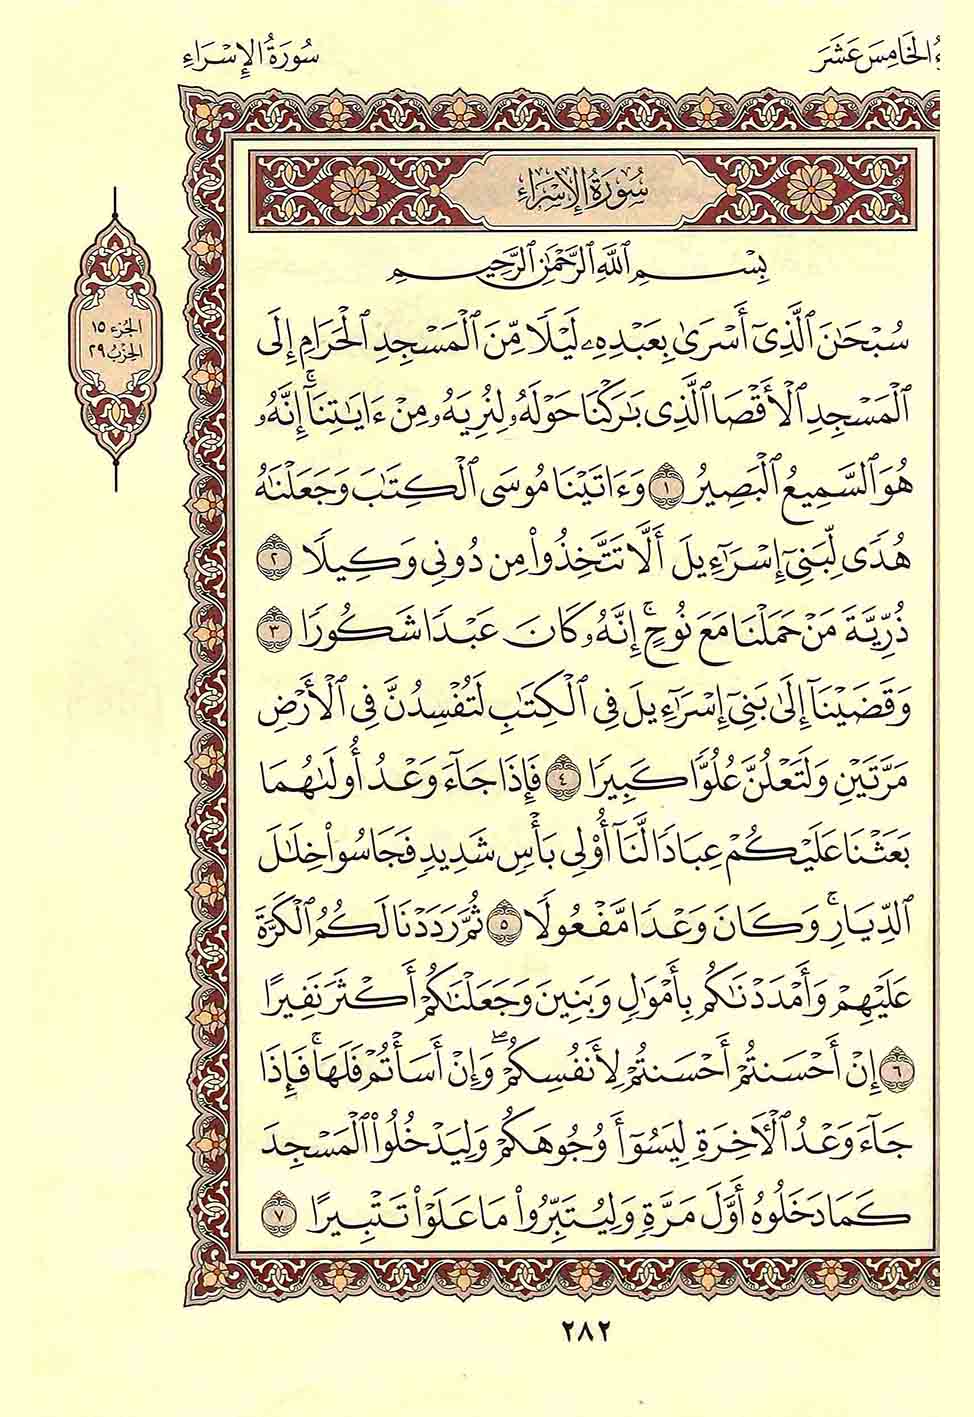 ءُ الخَامِسَ عَشَرَ
سُورَةُ الإِسْرَاءِ
سُورَةُ الإِسْرَاءِ
الجُزء ١٥
الحِزْبُ ٢٩
بِسْمِ ٱللَّهِ ٱلرَّحْمَٰنِ ٱلرَّحِيمِ
سُبْحَٰنَ ٱلَّذِىٓ أَسْرَىٰ بِعَبْدِهِۦ لَيْلًا مِّنَ ٱلْمَسْجِدِ ٱلْحَرَامِ إِلَى
ٱلْمَسْجِدِ ٱلْأَقْصَا ٱلَّذِى بَٰرَكْنَا حَوْلَهُۥ لِنُرِيَهُۥ مِنْ ءَايَٰتِنَآ ۚ إِنَّهُۥ
هُوَ ٱلسَّمِيعُ ٱلْبَصِيرُ ١ وَءَاتَيْنَا مُوسَى ٱلْكِتَٰبَ وَجَعَلْنَٰهُ
هُدًى لِّبَنِىٓ إِسْرَٰٓءِيلَ أَلَّا تَتَّخِذُوا۟ مِن دُونِى وَكِيلًا ٢
ذُرِّيَّةَ مَنْ حَمَلْنَا مَعَ نُوحٍ ۚ إِنَّهُۥ كَانَ عَبْدًا شَكُورًا ٣
وَقَضَيْنَآ إِلَىٰ بَنِىٓ إِسْرَٰٓءِيلَ فِى ٱلْكِتَٰبِ لَتُفْسِدُنَّ فِى ٱلْأَرْضِ
مَرَّتَيْنِ وَلَتَعْلُنَّ عُلُوًّا كَبِيرًا ٤ فَإِذَا جَآءَ وَعْدُ أُولَىٰهُمَا
بَعَثْنَا عَلَيْكُمْ عِبَادًا لَّنَآ أُو۟لِى بَأْسٍ شَدِيدٍ فَجَاسُوا۟ خِلَٰلَ
ٱلدِّيَارِ ۚ وَكَانَ وَعْدًا مَّفْعُولًا ٥ ثُمَّ رَدَدْنَا لَكُمُ ٱلْكَرَّةَ
عَلَيْهِمْ وَأَمْدَدْنَٰكُم بِأَمْوَٰلٍ وَبَنِينَ وَجَعَلْنَٰكُمْ أَكْثَرَ نَفِيرًا
٦ إِنْ أَحْسَنتُمْ أَحْسَنتُمْ لِأَنفُسِكُمْ ۖ وَإِنْ أَسَأْتُمْ فَلَهَا ۚ فَإِذَا
جَآءَ وَعْدُ ٱلْـَٔاخِرَةِ لِيَسُـۥٓـُٔوا۟ وُجُوهَكُمْ وَلِيَدْخُلُوا۟ ٱلْمَسْجِدَ
كَمَا دَخَلُوهُ أَوَّلَ مَرَّةٍ وَلِيُتَبِّرُوا۟ مَا عَلَوْا۟ تَتْبِيرًا ٧
٢٨٢